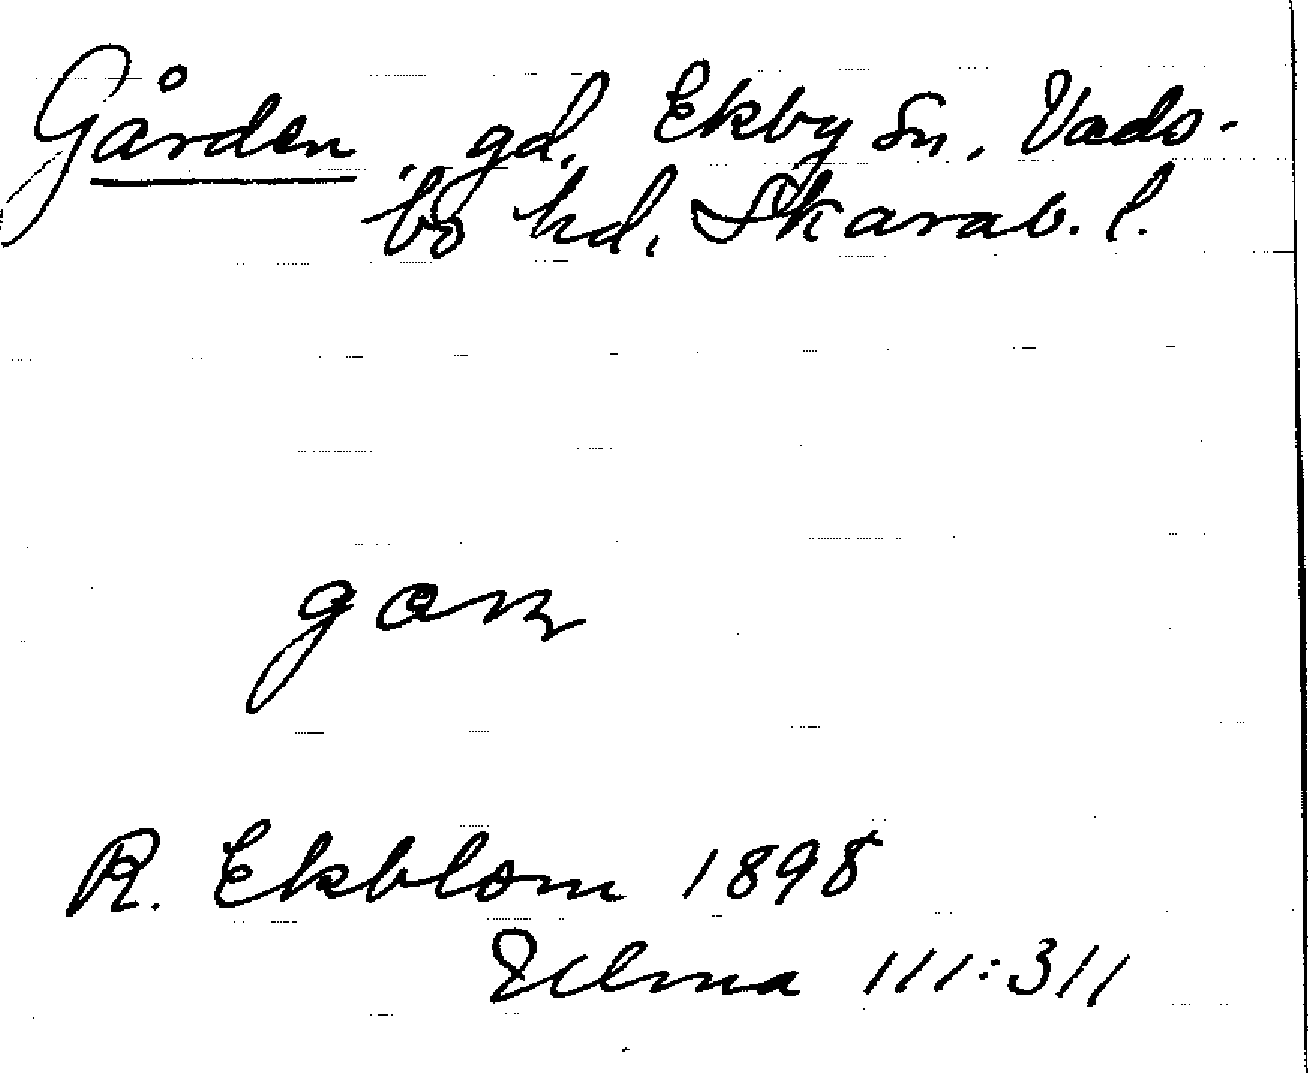 Gården, gd, Ekby sn, Vads-
bo hd, Skarab. l.
R. Ekblom 1898
Ulma 111:311